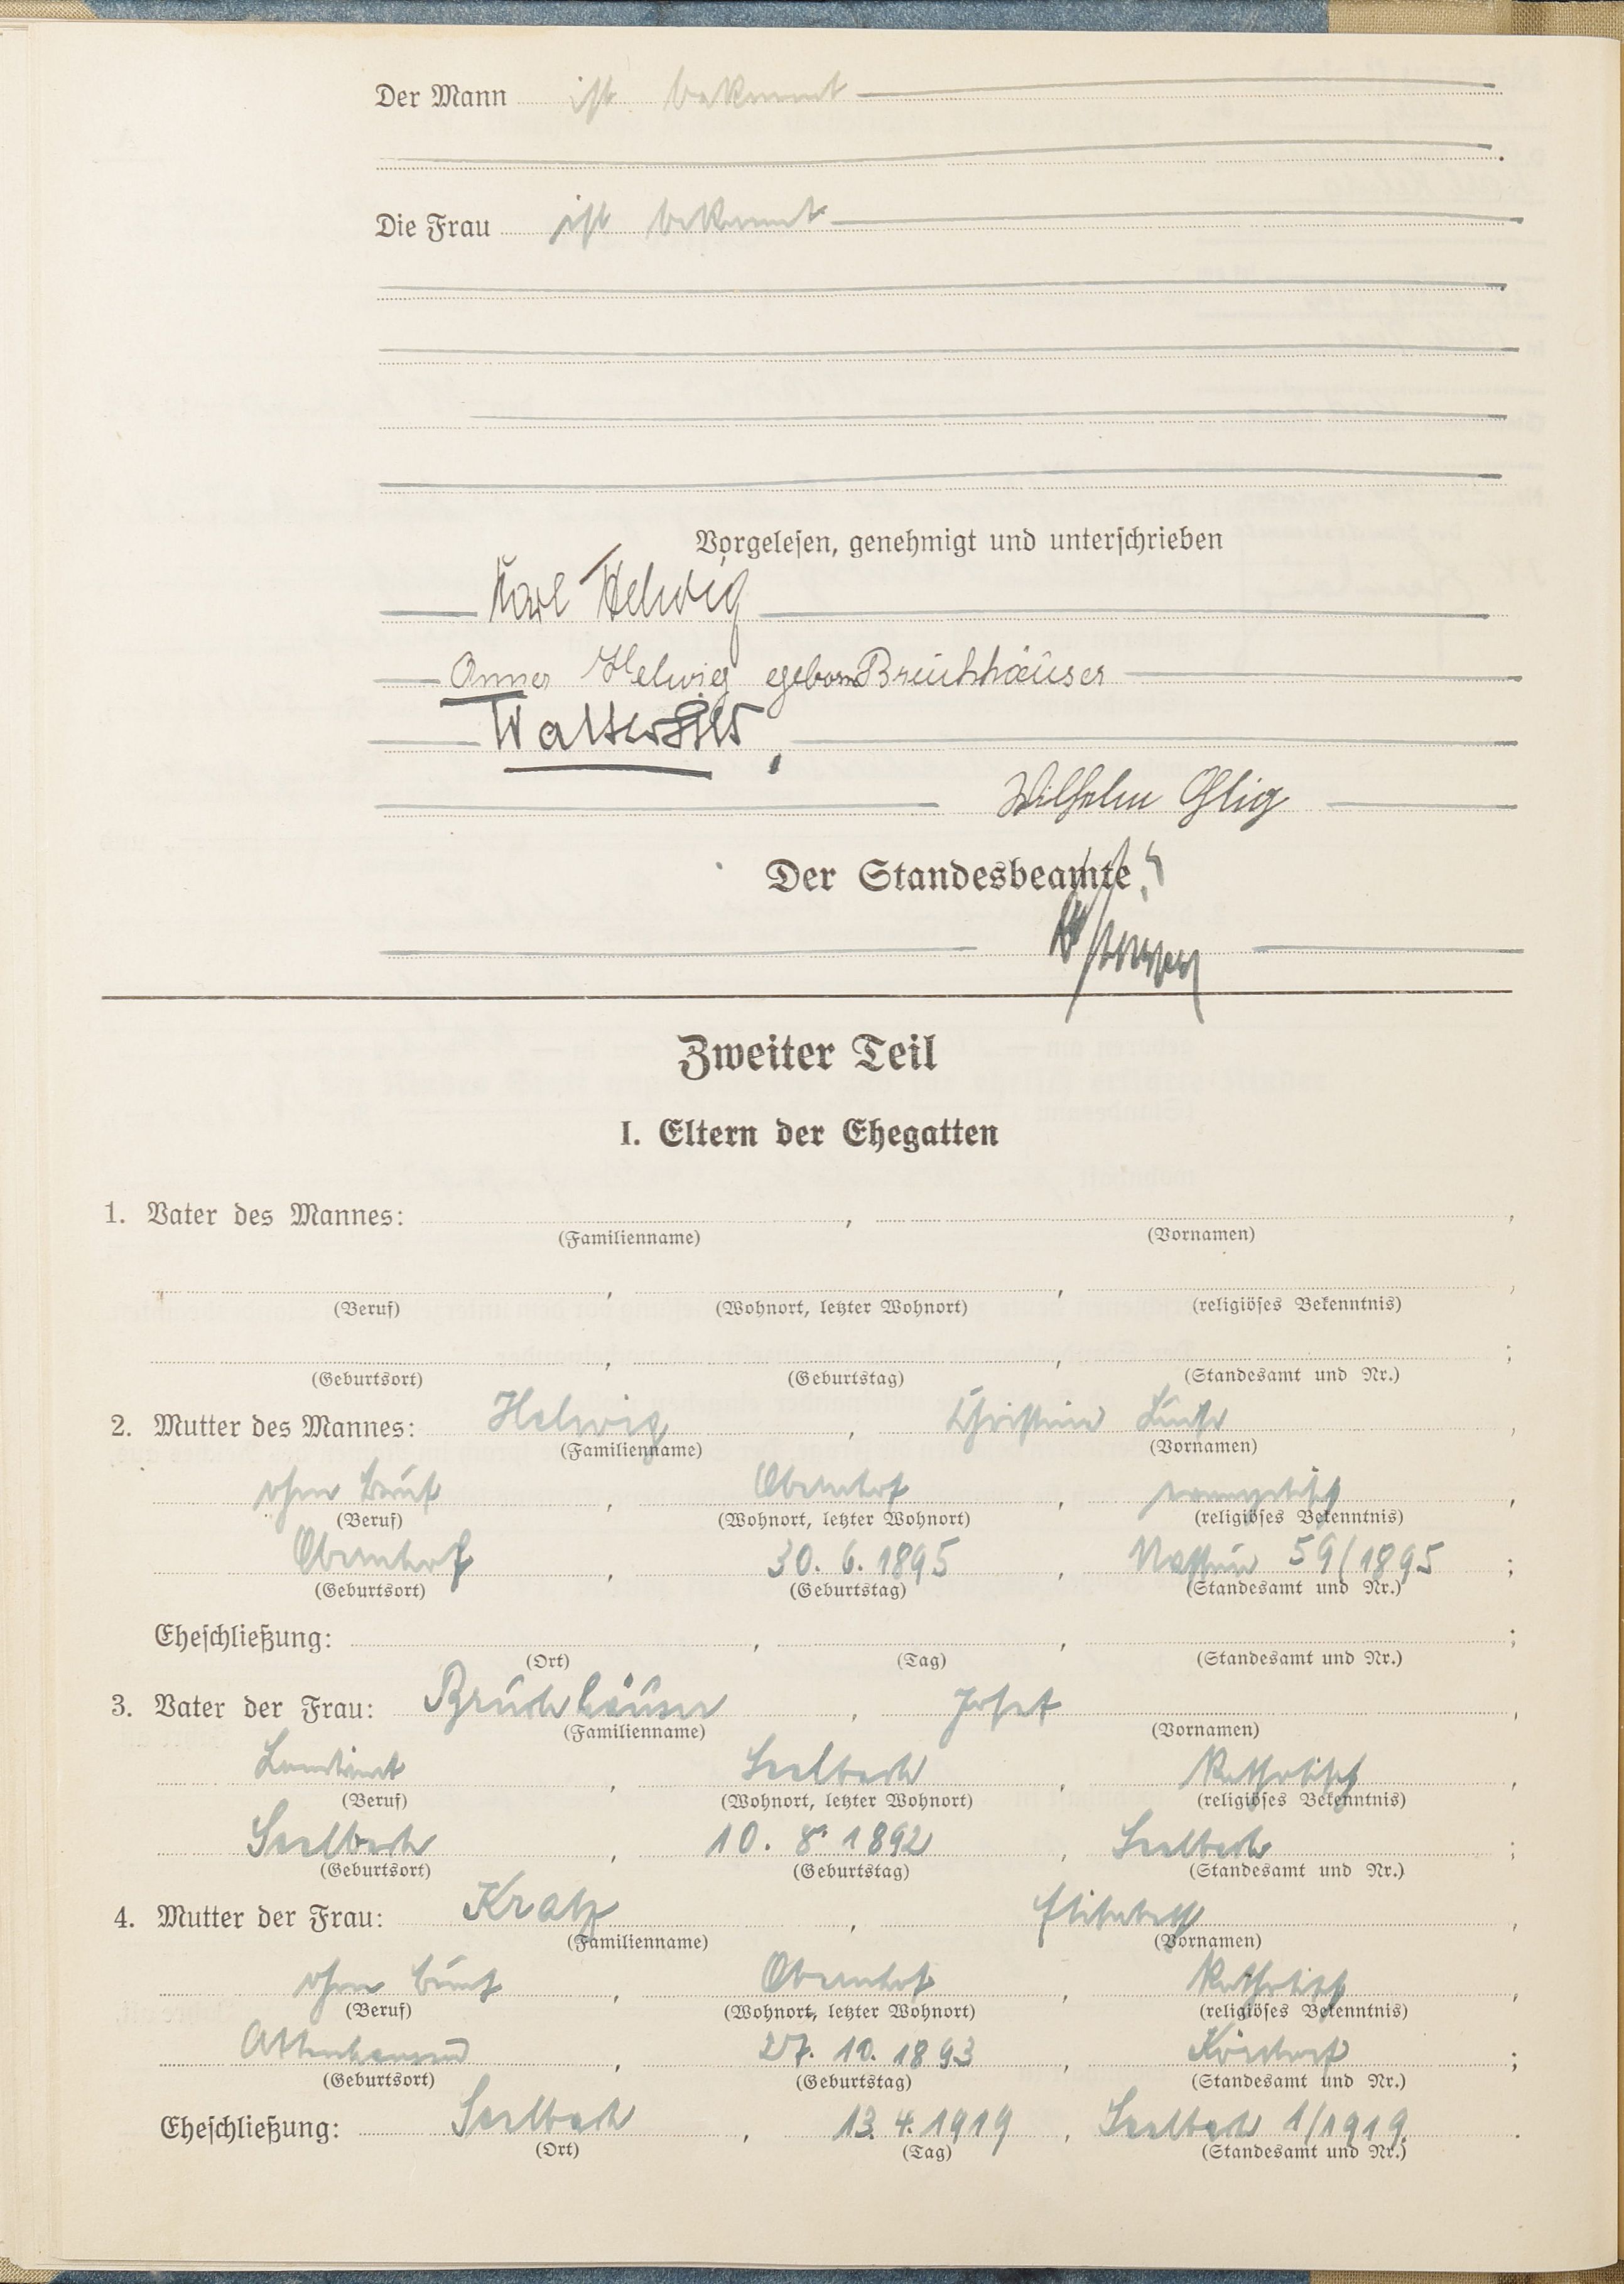 Der Mann ist bekannt
Die Frau ist bekannt
Vorgelesen, genehmigt und unterschrieben
Karl Helwig
Anna Helwig geborn Bruchhäuser
Walter
Wilhelm
Der Standesbeamte
Zweiter Teil
I. Eltern der Ehegatten
1. Vater des Mannes: , ,
(Familienname) (Vornamen)
, , ,
(Beruf) (Wohnort, letzter Wohnort) (religiöses Bekenntnis)
, , ;
(Geburtsort) (Geburtstag) (Standesamt und Nr.)
2. Mutter des Mannes: Helwig , Christine Luise ,
(Familienname) (Vornamen)
ohne Beruf , Obernhof , evangelisch ,
(Beruf) (Wohnort, letzter Wohnort) (religiöses Bekenntnis)
Obernhof , 30. 6. 1895 , Nassau 59/1895 ;
(Geburtsort) (Geburtstag) (Standesamt und Nr.)
Eheschließung: , , ;
(Ort) (Tag) (Standesamt und Nr.)
3. Vater der Frau: Bruchhäuser , Josef ,
(Familienname) (Vornamen)
Landwirt , Seelbach , katholisch ,
(Beruf) (Wohnort, letzter Wohnort) (religiöses Bekenntnis)
Seelbach , 10. 8. 1892 , Seelbach ;
(Geburtsort) (Geburtstag) (Standesamt und Nr.)
4. Mutter der Frau: Kratz , Elisabeth ,
(Familienname) (Vornamen)
ohne Beruf , Obernhof , katholisch ,
(Beruf) (Wohnort, letzter Wohnort) (religiöses Bekenntnis)
Attenhausen , 27. 10. 1893 , Kördorf ;
(Geburtsort) (Geburtstag) (Standesamt und Nr.)
Eheschließung: Seelbach , 13. 4. 1919 , Seelbach 1/1919 .
(Ort) (Tag) (Standesamt und Nr.)